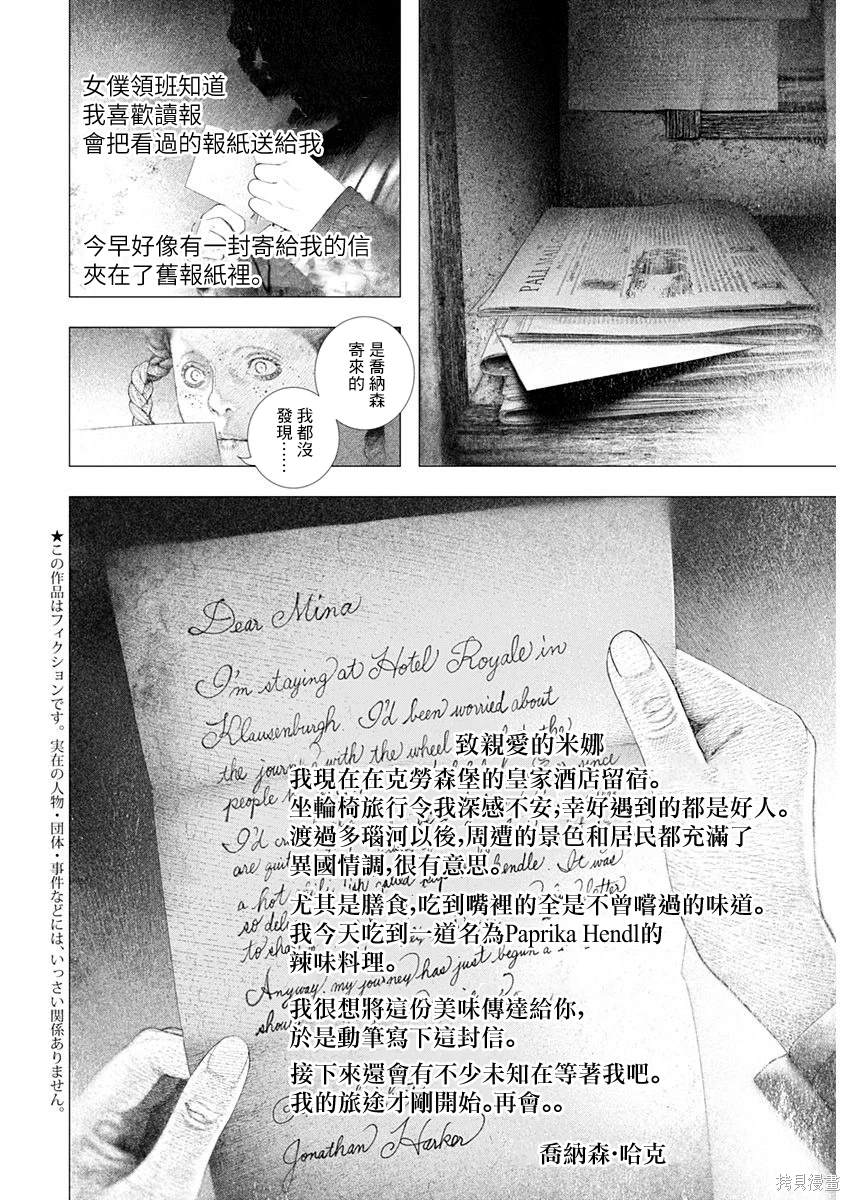 女僕領班知道
我喜歡讀報
會把看過的報紙送給我
今早好像有一封寄給我的信
夾在了舊報紙裡。
PALL MALL G
是喬納森
寄來的
我都沒
發現……
Dear Mina
I'm staying at Hotel Royale in
Klausenburgh. I'd been worried about
the journey with the wheel
people
since
I'd
are quite
hendle. It was
a hot
called
so del
to sha
Anyway, my journey has just begun
show
Jonathan Harker
致親愛的米娜
我現在在克勞森堡的皇家酒店留宿。
坐輪椅旅行令我深感不安,幸好遇到的都是好人。
渡過多瑙河以後,周遭的景色和居民都充滿了
異國情調,很有意思。
尤其是膳食,吃到嘴裡的全是不曾嚐過的味道。
我今天吃到一道名為Paprika Hendl的
辣味料理。
我很想將這份美味傳達給你,
於是動筆寫下這封信。
接下來還會有不少未知在等著我吧。
我的旅途才剛開始。再會。。
喬納森·哈克
★この作品はフィクションです。実在の人物・団体・事件などには、いっさい関係ありません。
拷貝漫畫